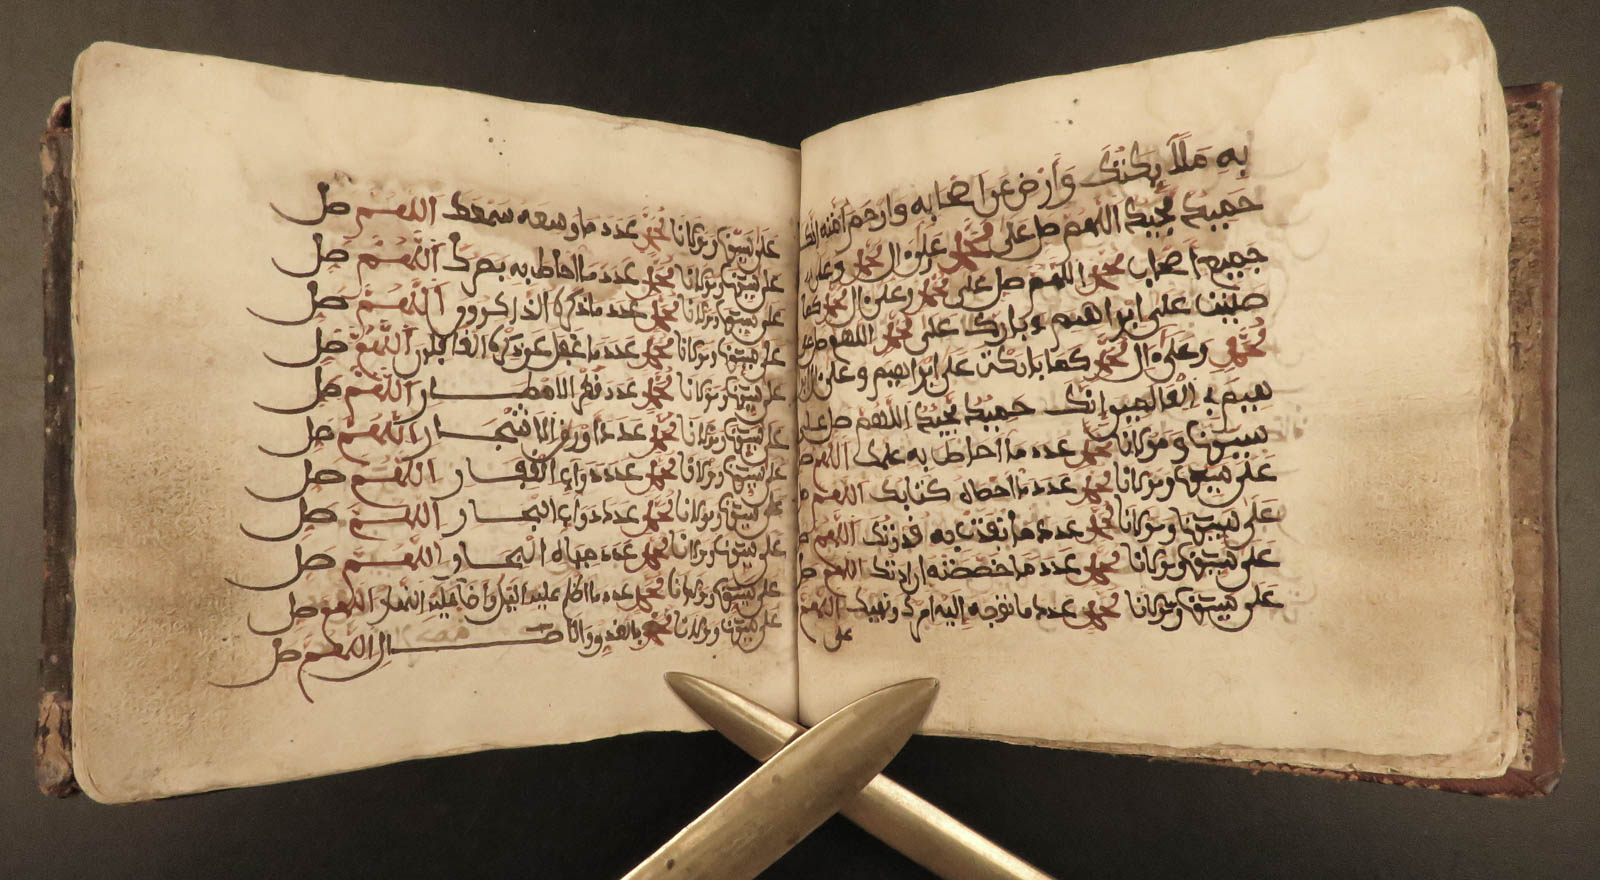 به ملائكتك وارض عن اصحابه وارحم أمته انك
حميد مجيد اللهم صل على محمد وعلى ال محمد وعلى
جميع اصحاب محمد اللهم صل على محمد وعلى ال محمد كما
صليت على ابراهيم وبارك على محمد اللهم صل على
محمد وعلى ال محمد كما باركت على ابراهيم وعلى ال ابرا
هيم في العالمين انك حميد مجيد اللهم صل على
سيدنا ومولانا محمد عدد ما احاط به علمك اللهم صل
على سيدنا ومولانا محمد عدد ما احصاه كتابك اللهم صل
على سيدنا ومولانا محمد عدد ما نفذت به قدرتك اللهم صل
على سيدنا ومولانا محمد عدد ما خصصته ارادتك اللهم صل
على سيدنا ومولانا محمد عدد ما توجه إليه امرك ونهيك اللهم صل
على
على سيدنا ومولانا محمد عدد ما وسعه سمعك اللهم صل
على سيدنا ومولانا محمد عدد ما احاط به بصرك اللهم صل
على سيدنا ومولانا محمد عدد ما ذكره الذاكرون اللهم صل
على سيدنا ومولانا محمد عدد ما غفل عن ذكره الغافلون اللهم صل
على سيدنا ومولانا محمد عدد قطر الامطار اللهم صل
على سيدنا ومولانا محمد عدد اوراق الاشجار اللهم صل
على سيدنا ومولانا محمد عدد دواب القفار اللهم صل
على سيدنا ومولانا محمد عدد دواب البحار اللهم صل
على سيدنا ومولانا محمد عدد مياه البحار اللهم صل
على سيدنا ومولانا محمد عدد ما اظلم عليه اليل وأضاء عليه النهار اللهم صل
على سيدنا ومولانا محمد بالغدو والاصال اللهم صل